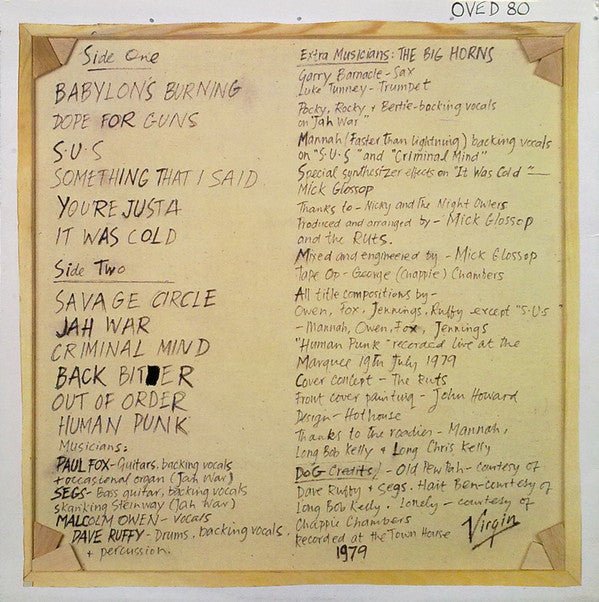 OVED 80
Side One
BABYLON'S BURNING
DOPE FOR GUNS
S·U·S
SOMETHING THAT I SAID
YOURE JUST A
IT WAS COLD
Side Two
SAVAGE CIRCLE
JAH WAR
CRIMINAL MIND
BACK BITER
OUT OF ORDER
HUMAN PUNK
Musicians:
PAUL FOX-Guitars, backing vocals
+ occasional organ (Jah War)
SEGS- Bass guitar, backing vocals
skanking Steinway (Jah War)
MALCOLM OWEN- Vocals
DAVE RUFFY- Drums, backing vocals
+ percussion.
Extra Musicians: THE BIG HORNS
Garry Barnacle - Sax
Luke Tunney - Trumpet
Pocky, Rocky + Bertie-backing vocals
on "Jah War"
Mannah (Faster than lightning) backing vocals
on "S·U·S" and "Criminal Mind"
Special synthesizer effects on "It Was Cold" -
Mick Glossop
Thanks to - Nicky and the Night Owlers
Produced and arranged by - Mick Glossop
and the Ruts.
Mixed and engineered by - Mick Glossop
Tape Op - George (Chappie) Chambers
All title compositions by -
Owen, Fox, Jennings, Ruffy except "S·U·S
- Mannah, Owen, Fox, Jennings
"Human Punk" recorded live at the
Marquee 19th July 1979
Cover concept - The Ruts
Front cover painting - John Howard
Design - Hothouse
Thanks to the roadies - Mannah,
Long Bob Kelly + Long Chris Kelly
DoG Credits/ - Old Pew Pah - courtesy of
Dave Ruffy + Segs. Hait Ben-courtesy of
Long Bob Kelly. Lonely - courtesy of
Chappie Chambers
Recorded at the Town House
1979
Virgin